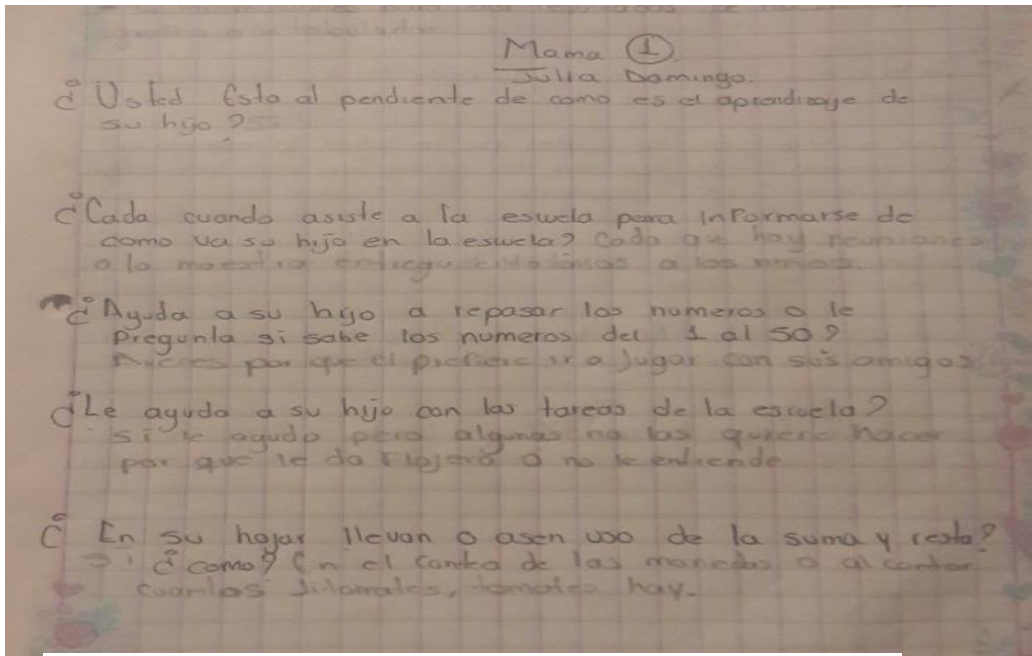 Mama ①
Julia Domingo.
¿Usted Esta al pendiente de como es el aprendizaje de
su hijo?
¿Cada cuando asiste a la escuela para informarse de
como va su hijo en la escuela? Cada que hay reuniones
o la maestra entregue a los niños.
¿Ayuda a su hijo a repasar los numeros o le
Pregunta si sabe los numeros del 1 al 50?
Aveces por que el prefiere ir a jugar con sus amigos
¿Le ayuda a su hijo con las tareas de la escuela?
si le ayudo pero algunas no las quiere hacer
por que le da flojera o no le entiende
¿En su hojar llevan o asen uso de la suma y resta?
Si ¿como? En el conteo de las monedas o al contar
cuantos jitomates, tomates hay.